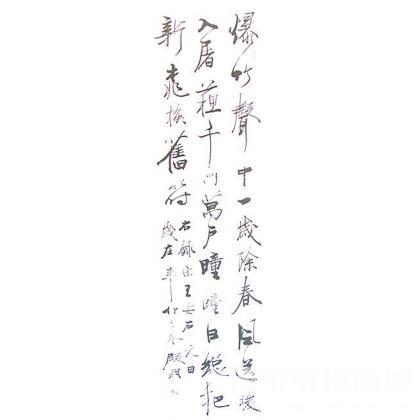 爆竹聲中一歲除春風送暖
入屠蘓千門萬户曈曈日總把
新桃換舊符
右録宋王安石元日
歲在辛卯冬